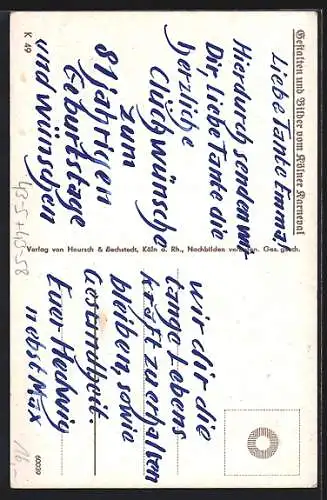 Gestalten und Bilder vom Kölner Karneval
Liebe Tante Emmi!
Hierdurch senden wir
Dir, liebe Tante die
herzliche
Glückwünsche
zum
81 jährigen
Geburtstage
und wünschen
wir dir die
lange Lebens
kraft zu erhalten
bleiben, sowie
Gesundheit.
Euer Hedwig
nebst Max
Verlag von Hoursch & Bechstedt, Köln a. Rh., Nachbilden verboten. Ges. gesch.
K 49
60039
16,-